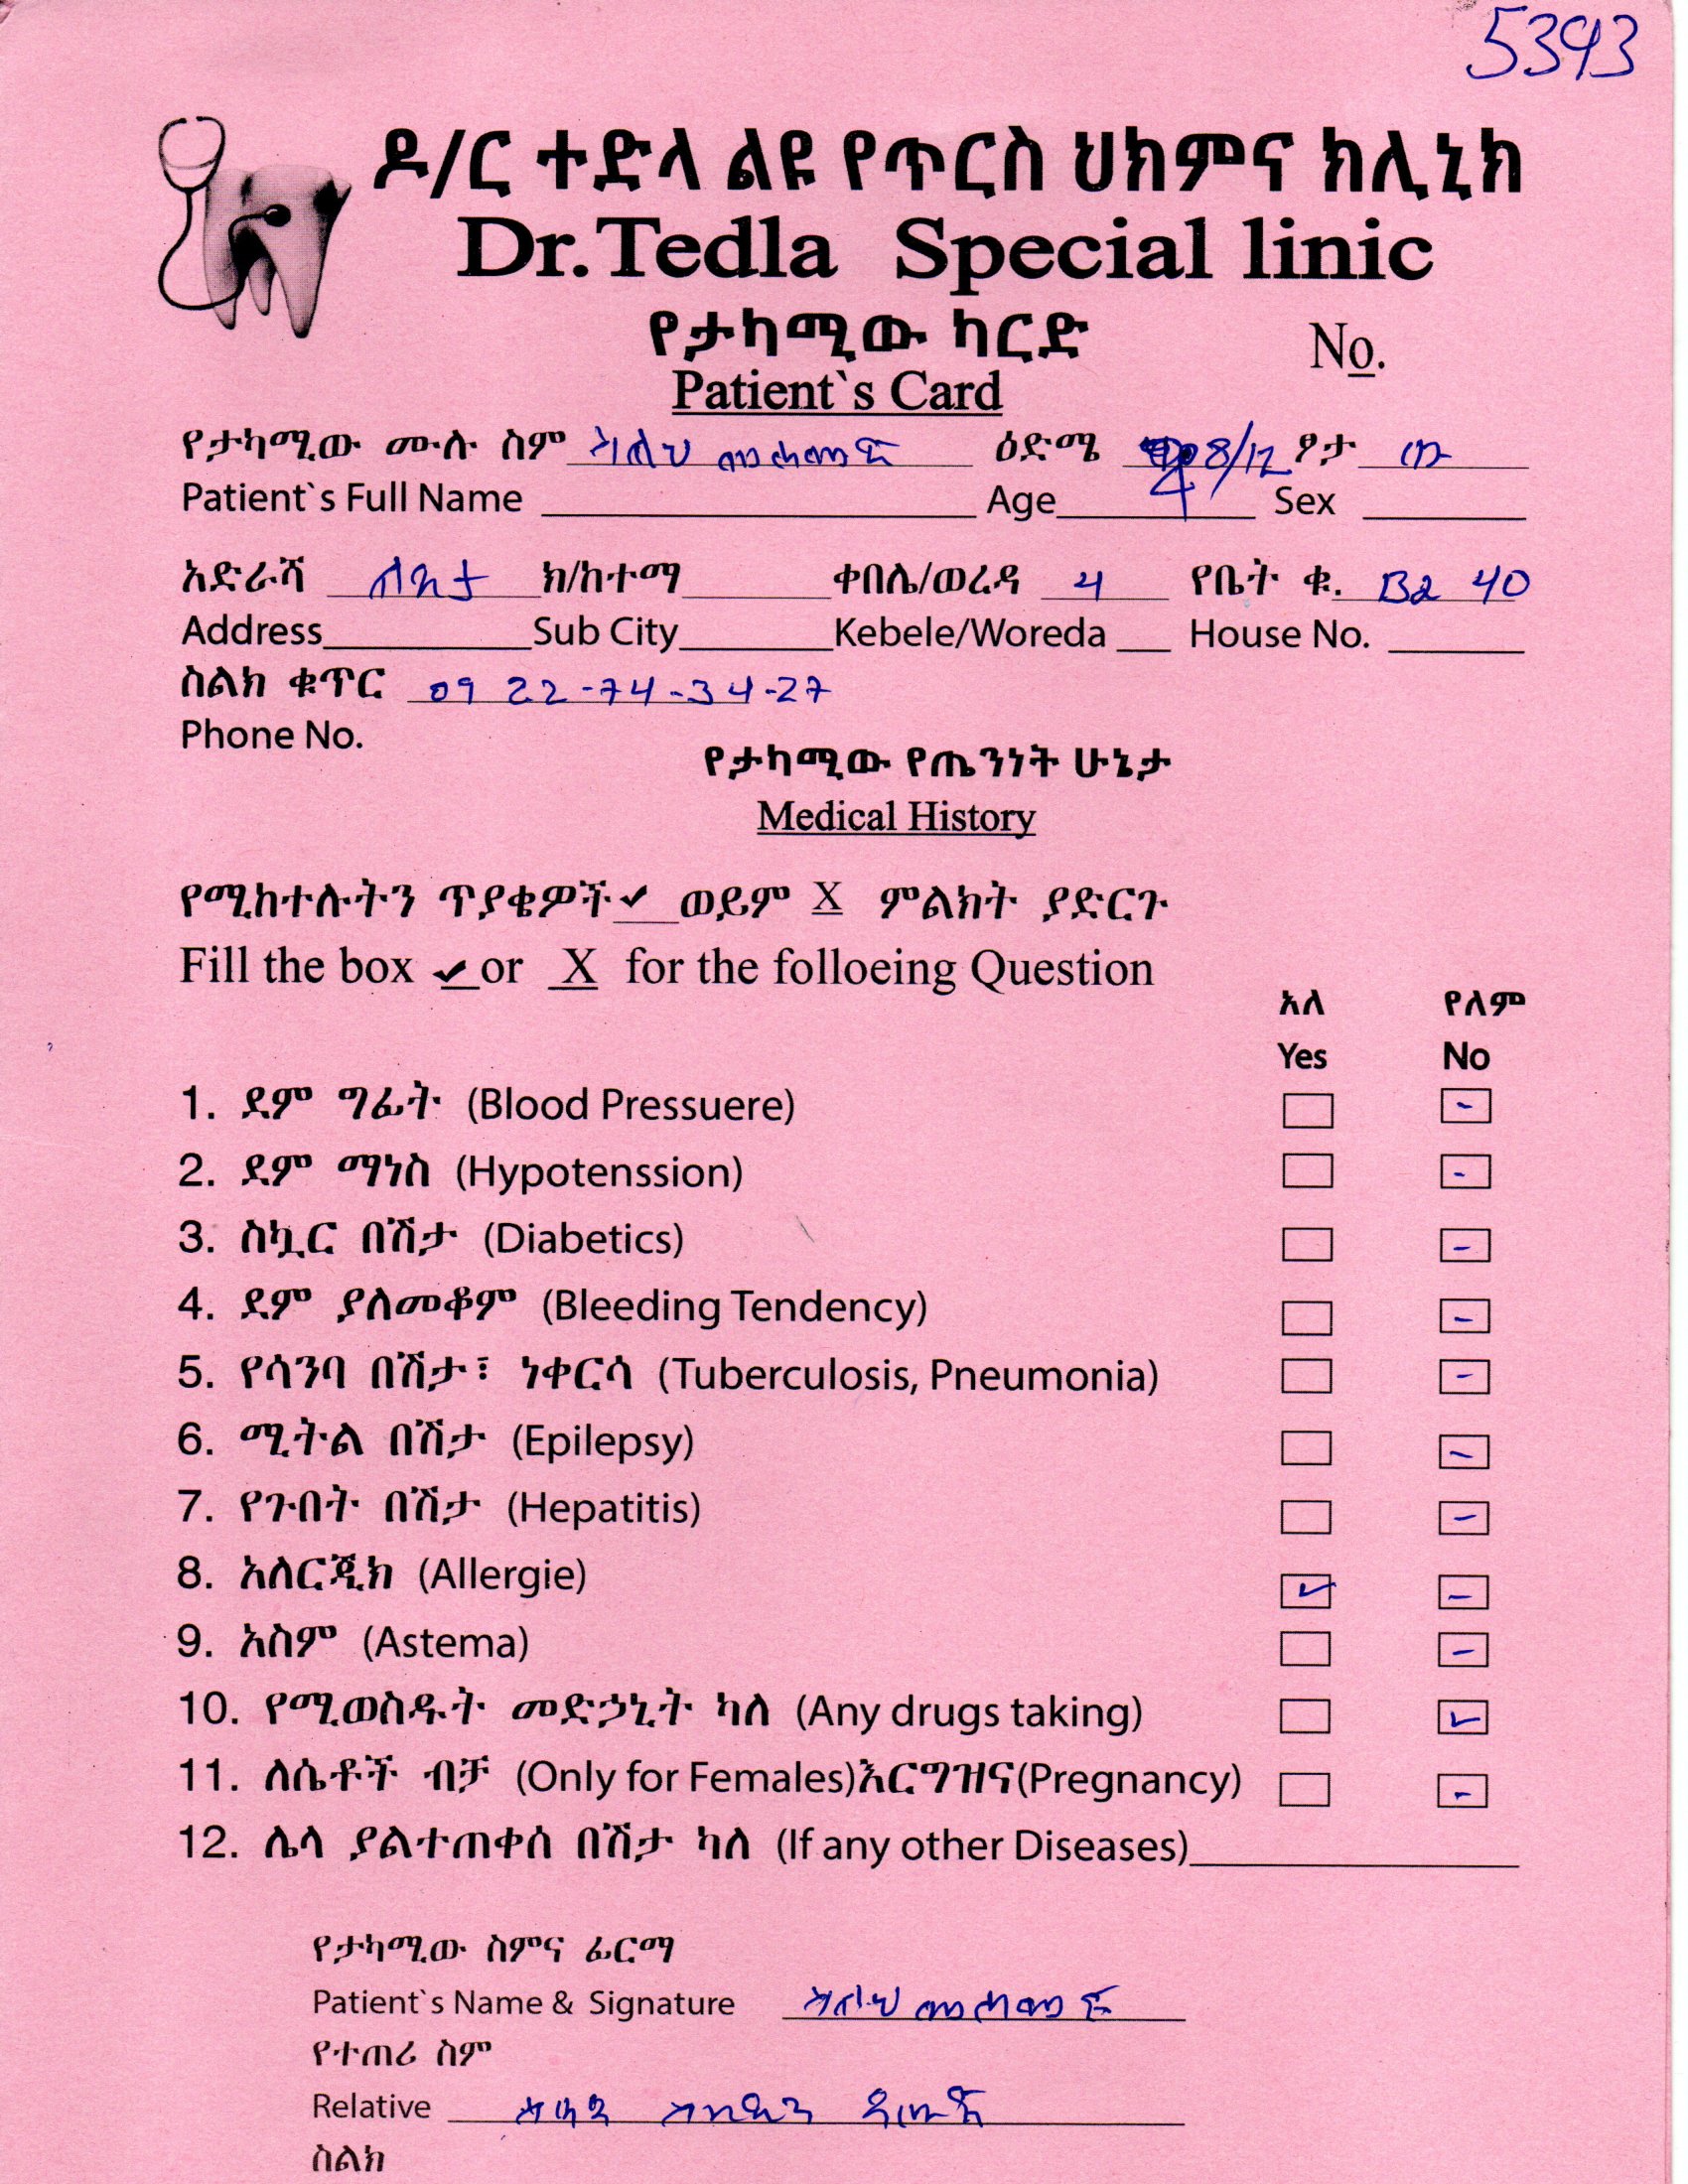 5393
ዶ/ር ተድላ ልዩ የጥርስ ህክምና ክሊኒክ
Dr.Tedla Special linic
የታካሚው ካርድ
No.
Patient`s Card
የታካሚው ሙሉ ስም ሳለህ መሐመድ ዕድሜ 4 8/12 ፆታ ወ
Patient`s Full Name Age Sex
አድራሻ ክ/ከተማ ቀበሌ/ወረዳ 4 የቤት ቁ. B2 40
Address Sub City Kebele/Woreda House No.
ስልክ ቁጥር 09 22-74-34-27
Phone No.
የታካሚው የጤንነት ሁኔታ
Medical History
የሚከተሉትን ጥያቄዎች ✓ ወይም X ምልክት ያድርጉ
Fill the box ✓ or X for the folloeing Question
አለ የለም
Yes No
1. ደም ግፊት (Blood Pressuere) -
2. ደም ማነስ (Hypotenssion) -
3. ስኳር በሽታ (Diabetics) -
4. ደም ያለመቆም (Bleeding Tendency) -
5. የሳንባ በሽታ፣ ነቀርሳ (Tuberculosis, Pneumonia) -
6. ሚትል በሽታ (Epilepsy) -
7. የጉበት በሽታ (Hepatitis) -
8. አለርጂክ (Allergie) ✓ -
9. አስም (Astema) -
10. የሚወስዱት መድኃኒት ካለ (Any drugs taking) ✓
11. ለሴቶች ብቻ (Only for Females)እርግዝና(Pregnancy) -
12. ሌላ ያልተጠቀሰ በሽታ ካለ (If any other Diseases)
የታካሚው ስምና ፊርማ
Patient`s Name & Signature ሳለህ መሐመድ
የተጠሪ ስም
Relative
ስልክ